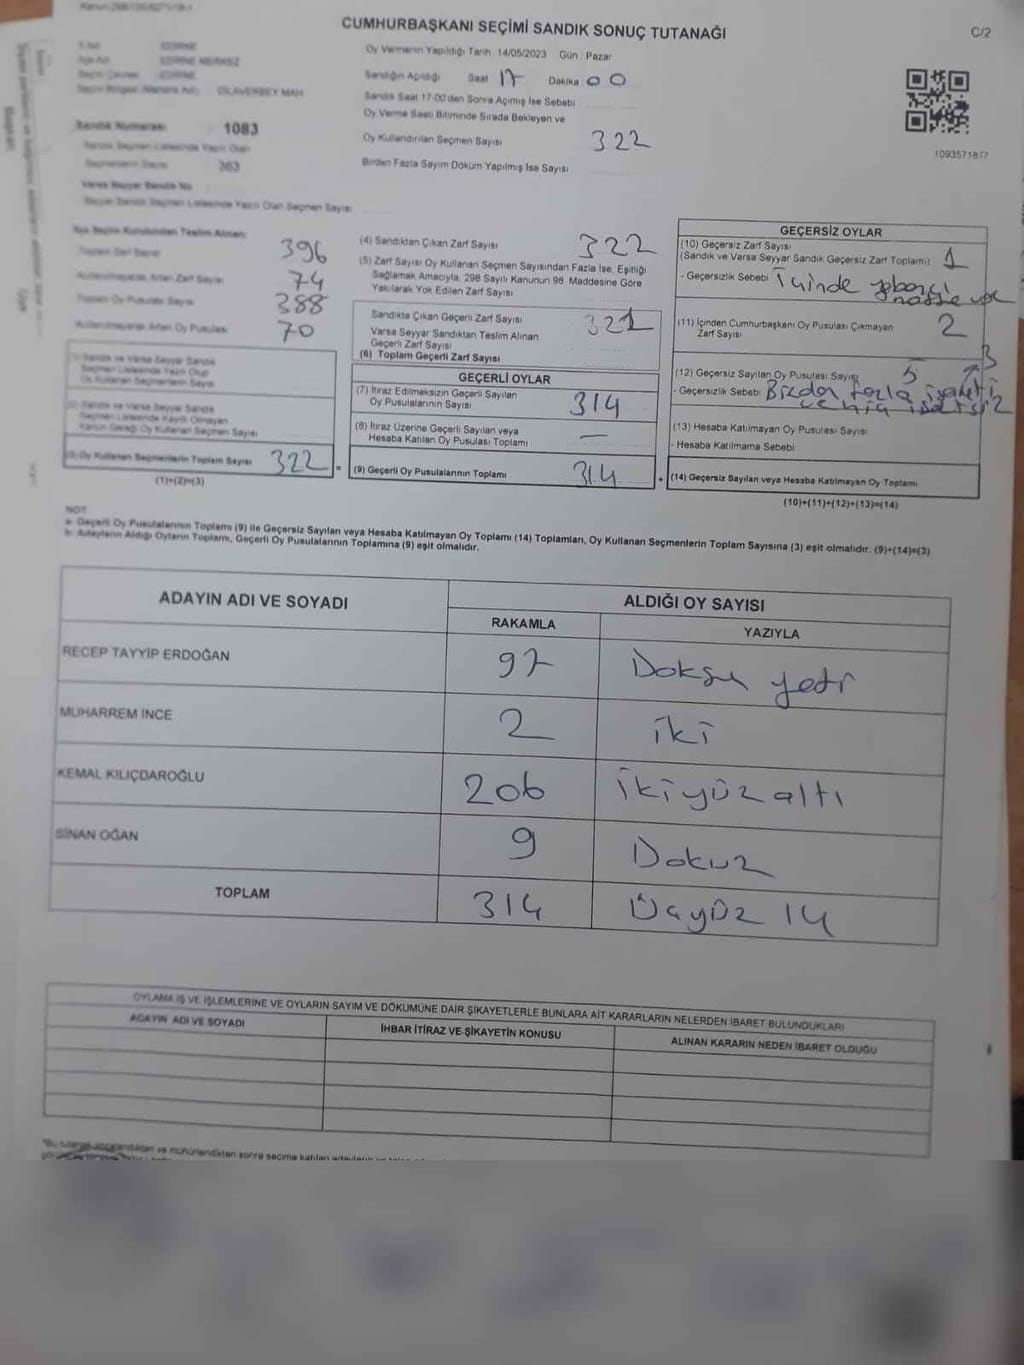 CUMHURBAŞKANI SEÇİMİ SANDIK SONUÇ TUTANAĞI
C/2
Oy Vermenin Yapıldığı Tarih 14/05/2023 Gün Pazar
EDİRNE
EDİRNE MERKEZ
EDİRNE
DİLAVERBEY MAH.
Sandığın Açıldığı Saat 17 Dakika 00
Sandık Saat 17:00'den Sonra Açımış İse Sebebi
Oy Verme Saati Bitiminde Sırada Bekleyen ve
Oy Kullandırılan Seçmen Sayısı 322
Birden Fazla Sayım Döküm Yapılmış İse Sayısı
1093571877
Sandık Numarası : 1083
Sandık Seçmen Listesinde Yazılı Olan
Seçmenlerin Sayısı 363
Varsa Seyyar Sandık No
Seyyar Sandık Seçmen Listesinde Yazılı Olan Seçmen Sayısı
İlçe Seçim Kurulundan Teslim Alınan;
Toplam Zarf Sayısı 396
Kullanılmayarak Artan Zarf Sayısı 74
Toplam Oy Pusulası Sayısı 388
Kullanılmayarak Artan Oy Pusulası 70
(1) Sandık ve Varsa Seyyar Sandık
Seçmen Listesinde Yazılı Olup
Oy Kullanan Seçmenlerin Sayısı
(2) Sandık ve Varsa Seyyar Sandık
Seçmen Listesinde Kayıtlı Olmayan
Kanun Gereği Oy Kullanan Seçmen Sayısı
(3) Oy Kullanan Seçmenlerin Toplam Sayısı 322 =
(1)+(2)=(3)
(4) Sandıktan Çıkan Zarf Sayısı 322
(5) Zarf Sayısı Oy Kullanan Seçmen Sayısından Fazla İse, Eşitliği
Sağlamak Amacıyla, 298 Sayılı Kanunun 98. Maddesine Göre
Yakılarak Yok Edilen Zarf Sayısı
Sandıkta Çıkan Geçerli Zarf Sayısı 321
Varsa Seyyar Sandıktan Teslim Alınan
Geçerli Zarf Sayısı
(6) Toplam Geçerli Zarf Sayısı
GEÇERLİ OYLAR
(7) İtiraz Edilmeksizin Geçerli Sayılan
Oy Pusulalarının Sayısı 314
(8) İtiraz Üzerine Geçerli Sayılan veya
Hesaba Katılan Oy Pusulası Toplamı —
(9) Geçerli Oy Pusulalarının Toplamı 314 +
GEÇERSİZ OYLAR
(10) Geçersiz Zarf Sayısı
(Sandık ve Varsa Seyyar Sandık Geçersiz Zarf Toplamı) 1
- Geçersizlik Sebebi İçinde yabancı
(11) İçinden Cumhurbaşkanı Oy Pusulası Çıkmayan
Zarf Sayısı 2
(12) Geçersiz Sayılan Oy Pusulası Sayısı 5
- Geçersizlik Sebebi Birden fazla işaretli
ve hiç işaretsiz
(13) Hesaba Katılmayan Oy Pusulası Sayısı
- Hesaba Katılmama Sebebi
(14) Geçersiz Sayılan veya Hesaba Katılmayan Oy Toplamı
(10)+(11)+(12)+(13)=(14)
NOT
a- Geçerli Oy Pusulalarının Toplamı (9) ile Geçersiz Sayılan veya Hesaba Katılmayan Oy Toplamı (14) Toplamları, Oy Kullanan Seçmenlerin Toplam Sayısına (3) eşit olmalıdır. (9)+(14)=(3)
b- Adayların Aldığı Oyların Toplamı, Geçerli Oy Pusulalarının Toplamına (9) eşit olmalıdır.
ADAYIN ADI VE SOYADI
ALDIĞI OY SAYISI
RAKAMLA YAZIYLA
RECEP TAYYİP ERDOĞAN 97 Doksan yedi
MUHARREM İNCE 2 iki
KEMAL KILIÇDAROĞLU 206 ikiyüzaltı
SİNAN OĞAN 9 Dokuz
TOPLAM 314 Üçyüz 14
OYLAMA İŞ VE İŞLEMLERİNE VE OYLARIN SAYIM VE DÖKÜMÜNE DAİR ŞİKAYETLERLE BUNLARA AİT KARARLARIN NELERDEN İBARET BULUNDUKLARI
ADAYIN ADI VE SOYADI İHBAR İTİRAZ VE ŞİKAYETİN KONUSU ALINAN KARARIN NEDEN İBARET OLDUĞU